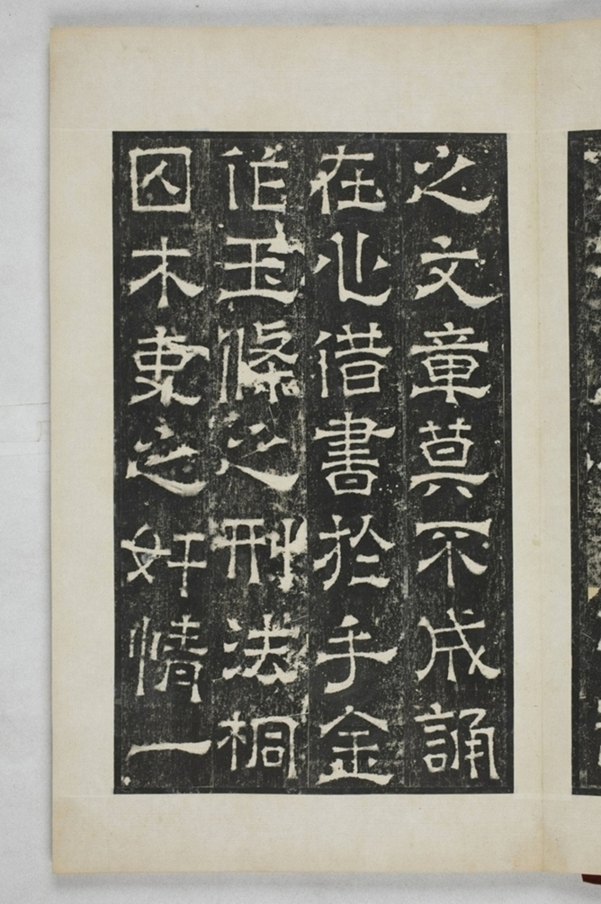 之文章莫不成誦
在心借書於手金
作玉條之刑法桐
囚木吏之奸情一